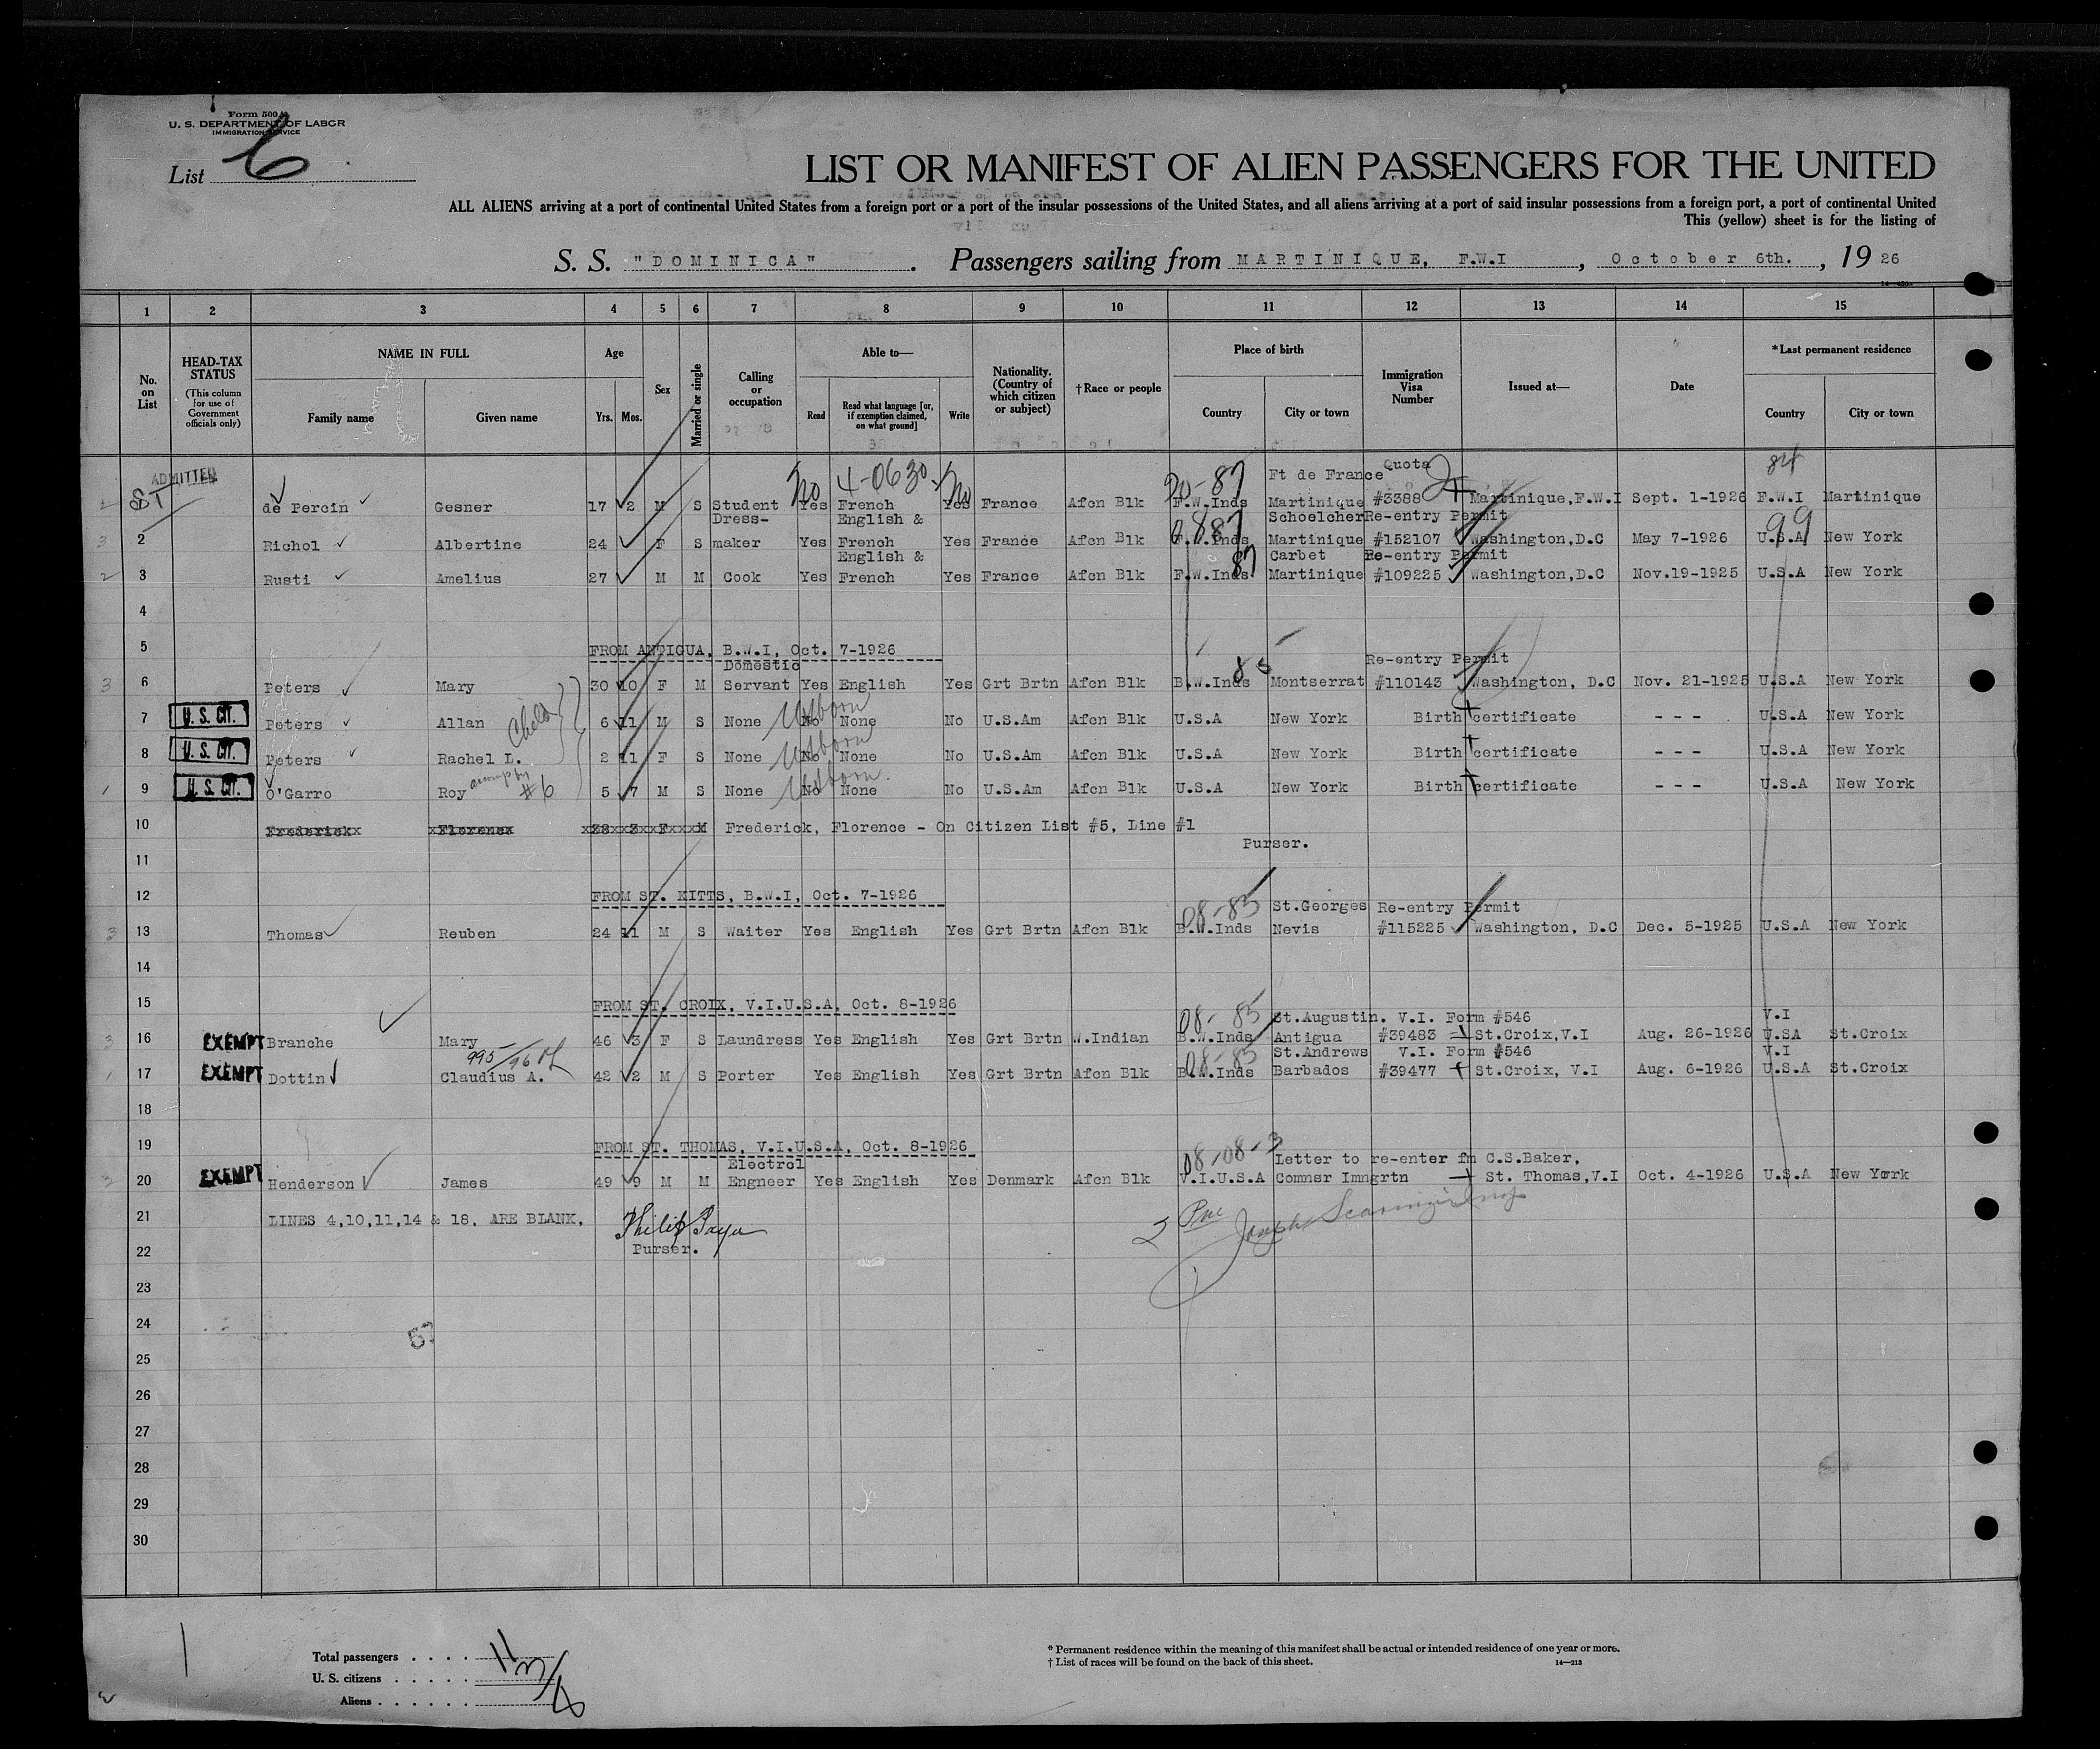 Form 500
U. S. DEPARTMENT OF LABOR
IMMIGRATION SERVICE
List 6
LIST OR MANIFEST OF ALIEN PASSENGERS FOR THE UNITED
ALL ALIENS arriving at a port of continental United States from a foreign port or a port of the insular possessions of the United States, and all aliens arriving at a port of said insular possessions from a foreign port, a port of continental United
This (yellow) sheet is for the listing of
S. S. "DOMINICA" . Passengers sailing from MARTINIQUE, F.W.I , October 6th. , 19 26
1 2 3 4 5 6 7 8 9 10 11 12 13 14 15
No. on List
HEAD-TAX STATUS (This column for use of Government officials only)
NAME IN FULL
Family name Given name
Age
Yrs. Mos.
Sex
Married or single
Calling or occupation
Able to—
Read Read what language [or, if exemption claimed, on what ground] Write
Nationality. (Country of which citizen or subject)
†Race or people
Place of birth
Country City or town
Immigration Visa Number
Issued at—
Date
*Last permanent residence
Country City or town
ADMITTED No 4-0630 No 20-87 Ft de France Quota 84
ST de Percin Gesner 17 2 M S Student Yes French Yes France Afcn Blk F.W.Inds Martinique #3388 Martinique,F.W.I Sept. 1-1926 F.W.I Martinique
Dress- English & 87 Schoelcher Re-entry Permit 99
2 Richol Albertine 24 F S maker Yes French Yes France Afcn Blk F.W.Inds Martinique #152107 Washington,D.C May 7-1926 U.S.A New York
English & 87 Carbet Re-entry Permit
3 Rusti Amelius 27 M M Cook Yes French Yes France Afcn Blk F.W.Inds Martinique #109225 Washington,D.C Nov.19-1925 U.S.A New York
4
5 FROM ANTIGUA, B.W.I, Oct. 7-1926
Domestic 85 Re-entry Permit
6 Peters Mary 30 10 F M Servant Yes English Yes Grt Brtn Afcn Blk B.W.Inds Montserrat #110143 Washington, D.C Nov. 21-1925 U.S.A New York
7 U. S. CIT. Peters Allan Child 6 11 M S None No USborn None No U.S.Am Afcn Blk U.S.A New York Birth certificate - - - U.S.A New York
8 U. S. CIT. Peters Rachel L. 2 11 F S None No USborn None No U.S.Am Afcn Blk U.S.A New York Birth certificate - - - U.S.A New York
9 U. S. CIT. O'Garro Roy accomp by #6 5 7 M S None No USborn None No U.S.Am Afcn Blk U.S.A New York Birth certificate - - - U.S.A New York
10 Frederick Florence F M Frederick, Florence - On Citizen List #5, Line #1
11 Purser.
12 FROM ST. KITTS, B.W.I, Oct. 7-1926
08-85 St.Georges Re-entry Permit
13 Thomas Reuben 24 11 M S Waiter Yes English Yes Grt Brtn Afcn Blk B.W.Inds Nevis #115225 Washington, D.C Dec. 5-1925 U.S.A New York
14
15 FROM ST. CROIX, V.I.U.S.A, Oct. 8-1926
08-85 St.Augustin. V.I. Form #546 V.I
16 EXEMPT Branche Mary 46 3 F S Laundress Yes English Yes Grt Brtn W.Indian B.W.Inds Antigua #39483 St.Croix,V.I Aug. 26-1926 U.SA St.Croix
08-85 St.Andrews V.I. Form #546 V.I
17 EXEMPT Dottin Claudius A. 42 2 M S Porter Yes English Yes Grt Brtn Afcn Blk B.W.Inds Barbados #39477 St.Croix, V.I Aug. 6-1926 U.S.A St.Croix
18
19 FROM ST. THOMAS, V.I.U.S.A, Oct. 8-1926
Electrcl 08-08-3 Letter to re-enter fm C.S.Baker,
20 EXEMPT Henderson James 49 9 M M Engneer Yes English Yes Denmark Afcn Blk V.I.U.S.A Comnsr Immgrtn St. Thomas,V.I Oct. 4-1926 U.S.A New York
21 LINES 4,10,11,14 & 18, ARE BLANK,
22 Purser.
23
24
25
26
27
28
29
30
Total passengers . . . . 11
U. S. citizens . . . . . 3
Aliens . . . . . . 8
* Permanent residence within the meaning of this manifest shall be actual or intended residence of one year or more.
† List of races will be found on the back of this sheet.
14—213